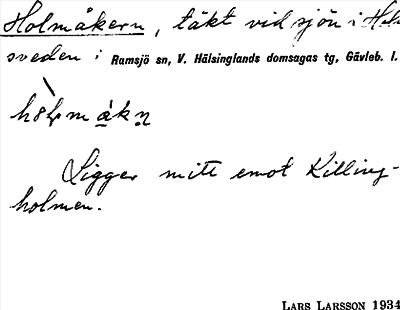 Holmåkern, täkt vid sjön i Hel
sveden i Ramsjö sn, V. Hälsinglands domsagas tg, Gävleb. l.
Ligger mitt emot Killing-
holmen.
LARS LARSSON 1934